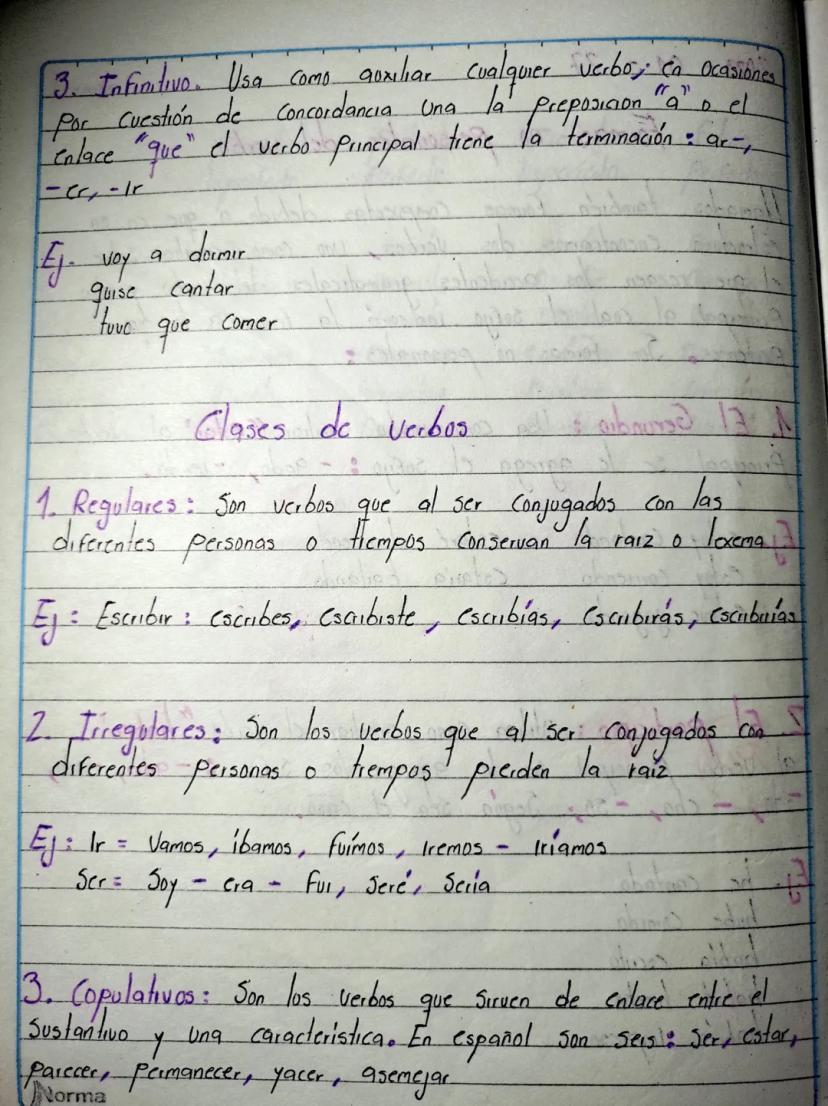 3. Infinitivo. Usa como auxiliar cualquier verbo; en ocasiones
por cuestión de concordancia una la preposicion "a" o el
enlace "que" el verbo principal tiene la terminación: ar-,
-er, -Ir
Ej. voy a dormir
quise cantar
tuvo que comer
Clases de verbos
1. Regulares: Son verbos que al ser conjugados con las
diferentes personas o tiempos conservan la raiz o lexema
Ej: Escribir: escribes, escribiste, escribías, escribirás, escribirías
2. Irregulares: Son los verbos que al ser conjugados con
diferentes personas o tiempos pierden la raíz
Ej: Ir = Vamos, íbamos, fuímos, Iremos - Iríamos
Ser = Soy - era - Fui, seré, Sería
3. Copulativos: Son los verbos que sirven de enlace entre el
sustantivo y una característica. En español son seis: ser, estar,
parecer, permanecer, yacer, asemejar
Norma